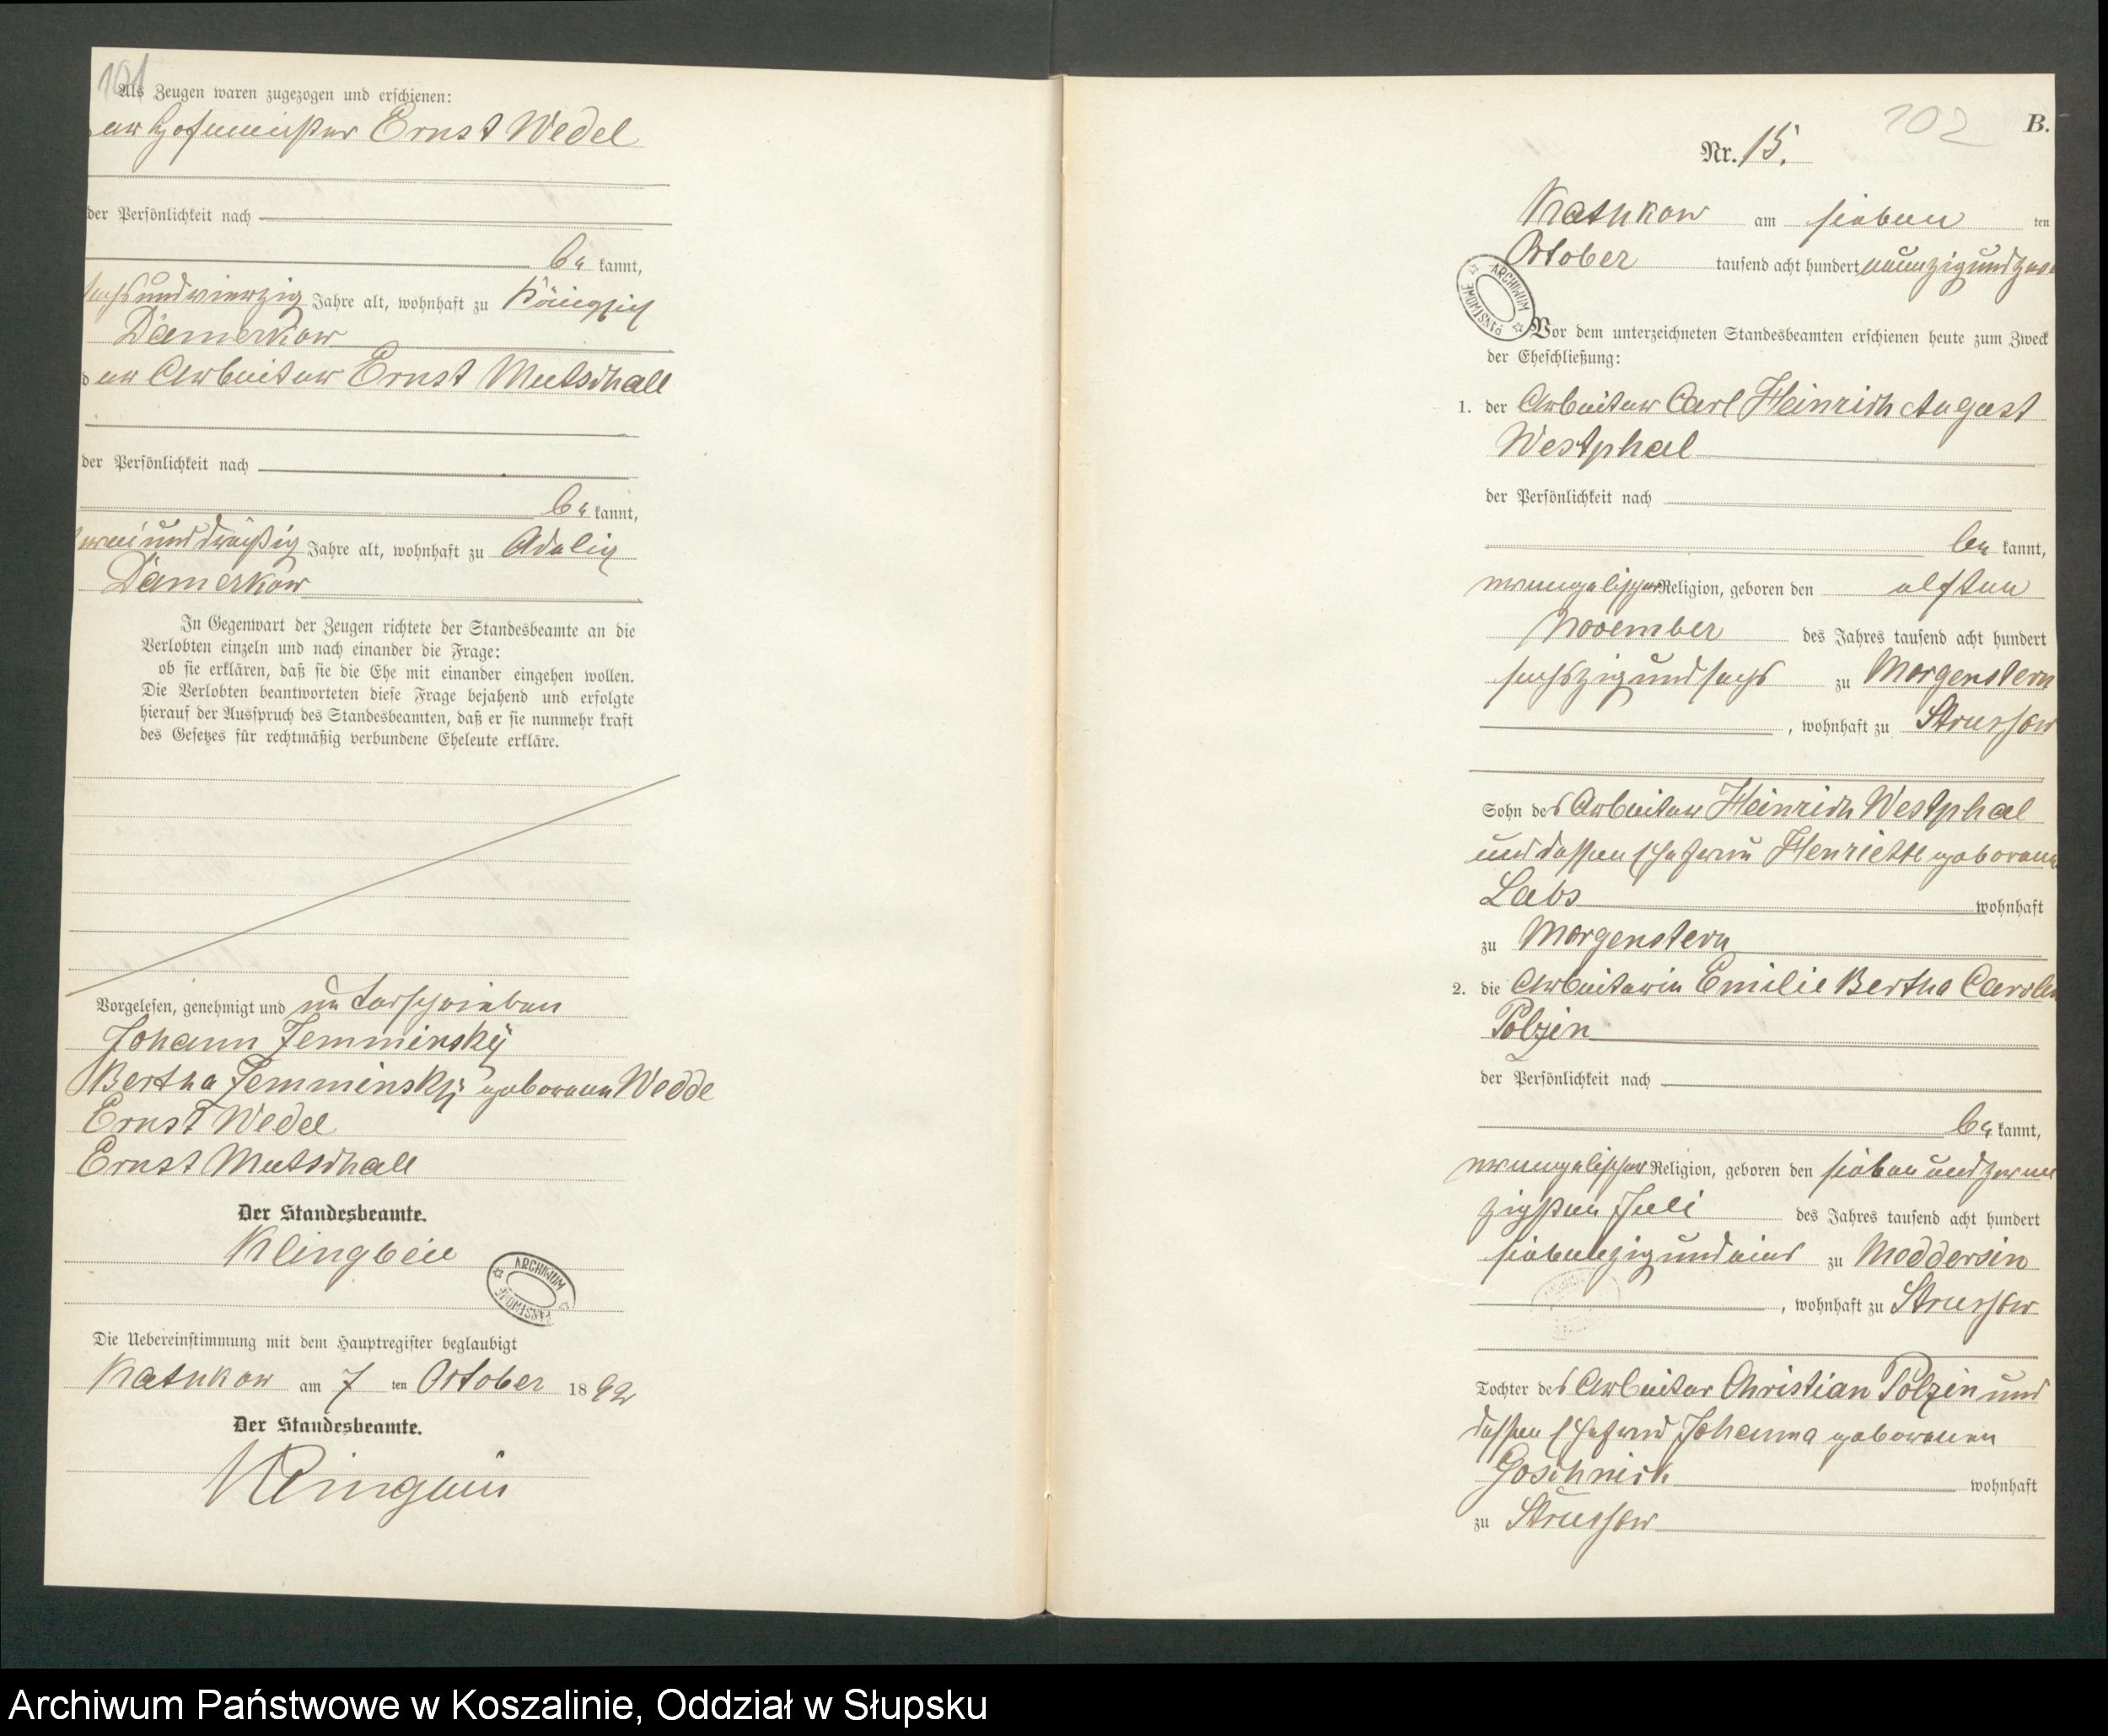 101
Als Zeugen waren zugezogen und erschienen:
er Hofmeister Ernst Wedel
der Persönlichkeit nach
be kannt,
sechsundvierzig Jahre alt, wohnhaft zu Königlich
Damerkow
der Arbeiter Ernst Mutschall
der Persönlichkeit nach
be kannt,
zweiunddreißig Jahre alt, wohnhaft zu Adelig
Damerkow
In Gegenwart der Zeugen richtete der Standesbeamte an die
Verlobten einzeln und nach einander die Frage:
ob sie erklären, daß sie die Ehe mit einander eingehen wollen.
Die Verlobten beantworteten diese Frage bejahend und erfolgte
hierauf der Ausspruch des Standesbeamten, daß er sie nunmehr kraft
des Gesetzes für rechtmäßig verbundene Eheleute erkläre.
Vorgelesen, genehmigt und unterschrieben
Johann Zemminsky
Bertha Zemminsky geborene Wedde
Ernst Wedel
Ernst Mutschall
Der Standesbeamte.
Klingbeil
ARCHIWUM PAŃSTWOWE
Die Uebereinstimmung mit dem Hauptregister beglaubigt
Kathkow am 7 ten October 18 92
Der Standesbeamte.
Klingbeil
102
B.
Nr. 15.
Kathkow am sieben ten
October tausend acht hundert neunzigundzwei
ARCHIWUM PAŃSTWOWE
Vor dem unterzeichneten Standesbeamten erschienen heute zum Zweck
der Eheschließung:
1. der Arbeiter Carl Heinrich August
Westphal
der Persönlichkeit nach
be kannt,
evangelischer Religion, geboren den elften
November des Jahres tausend acht hundert
sechszigundsechs zu Morgenstern
, wohnhaft zu Strussow
Sohn des Arbeiter Heinrich Westphal
und dessen Ehefrau Henriette geborene
Labs wohnhaft
zu Morgenstern
2. die Arbeiterin Emilie Bertha Caroline
Polzin
der Persönlichkeit nach
be kannt,
evangelischer Religion, geboren den siebenundzwan
zigsten Juli des Jahres tausend acht hundert
siebenzigundeins zu Moddersin
, wohnhaft zu Strussow
Tochter des Arbeiter Christian Polzin und
dessen Ehefrau Johanna geborenen
Goschnick wohnhaft
zu Strussow
Archiwum Państwowe w Koszalinie, Oddział w Słupsku